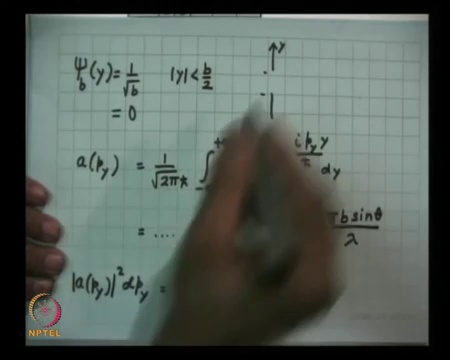 ψ_b(y) = 1/√b |y| < b/2
= 0
y
a(p_y) = 1/√(2πħ) ∫ i p_y y/ħ dy
= .... πb sinθ/λ
|a(p_y)|² dp_y =
NPTEL